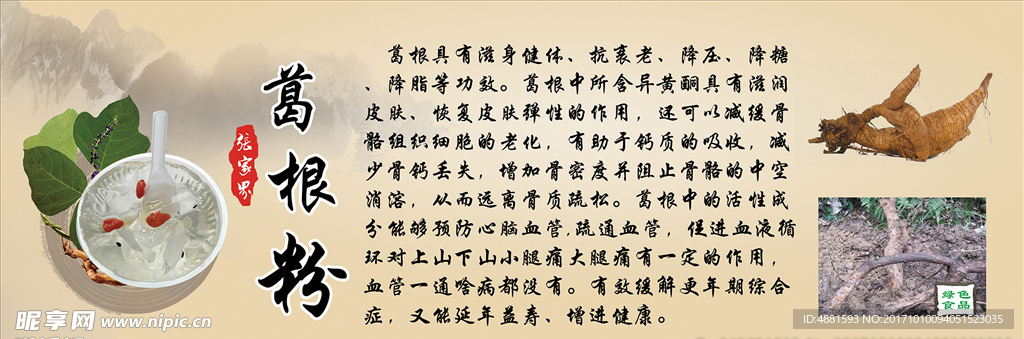 葛根粉
张家界
葛根具有滋身健体、抗衰老、降压、降糖
、降脂等功效。葛根中所含异黄酮具有滋润
皮肤、恢复皮肤弹性的作用，还可以减缓骨
骼组织细胞的老化，有助于钙质的吸收，减
少骨钙丢失，增加骨密度并阻止骨骼的中空
消溶，从而远离骨质疏松。葛根中的活性成
分能够预防心脑血管,疏通血管，促进血液循
环对上山下山小腿痛大腿痛有一定的作用，
血管一通啥病都没有。有效缓解更年期综合
症，又能延年益寿、增进健康。
绿色
食品
昵享网 www.nipic.cn
ID:4881593 NO:20171010094051523035